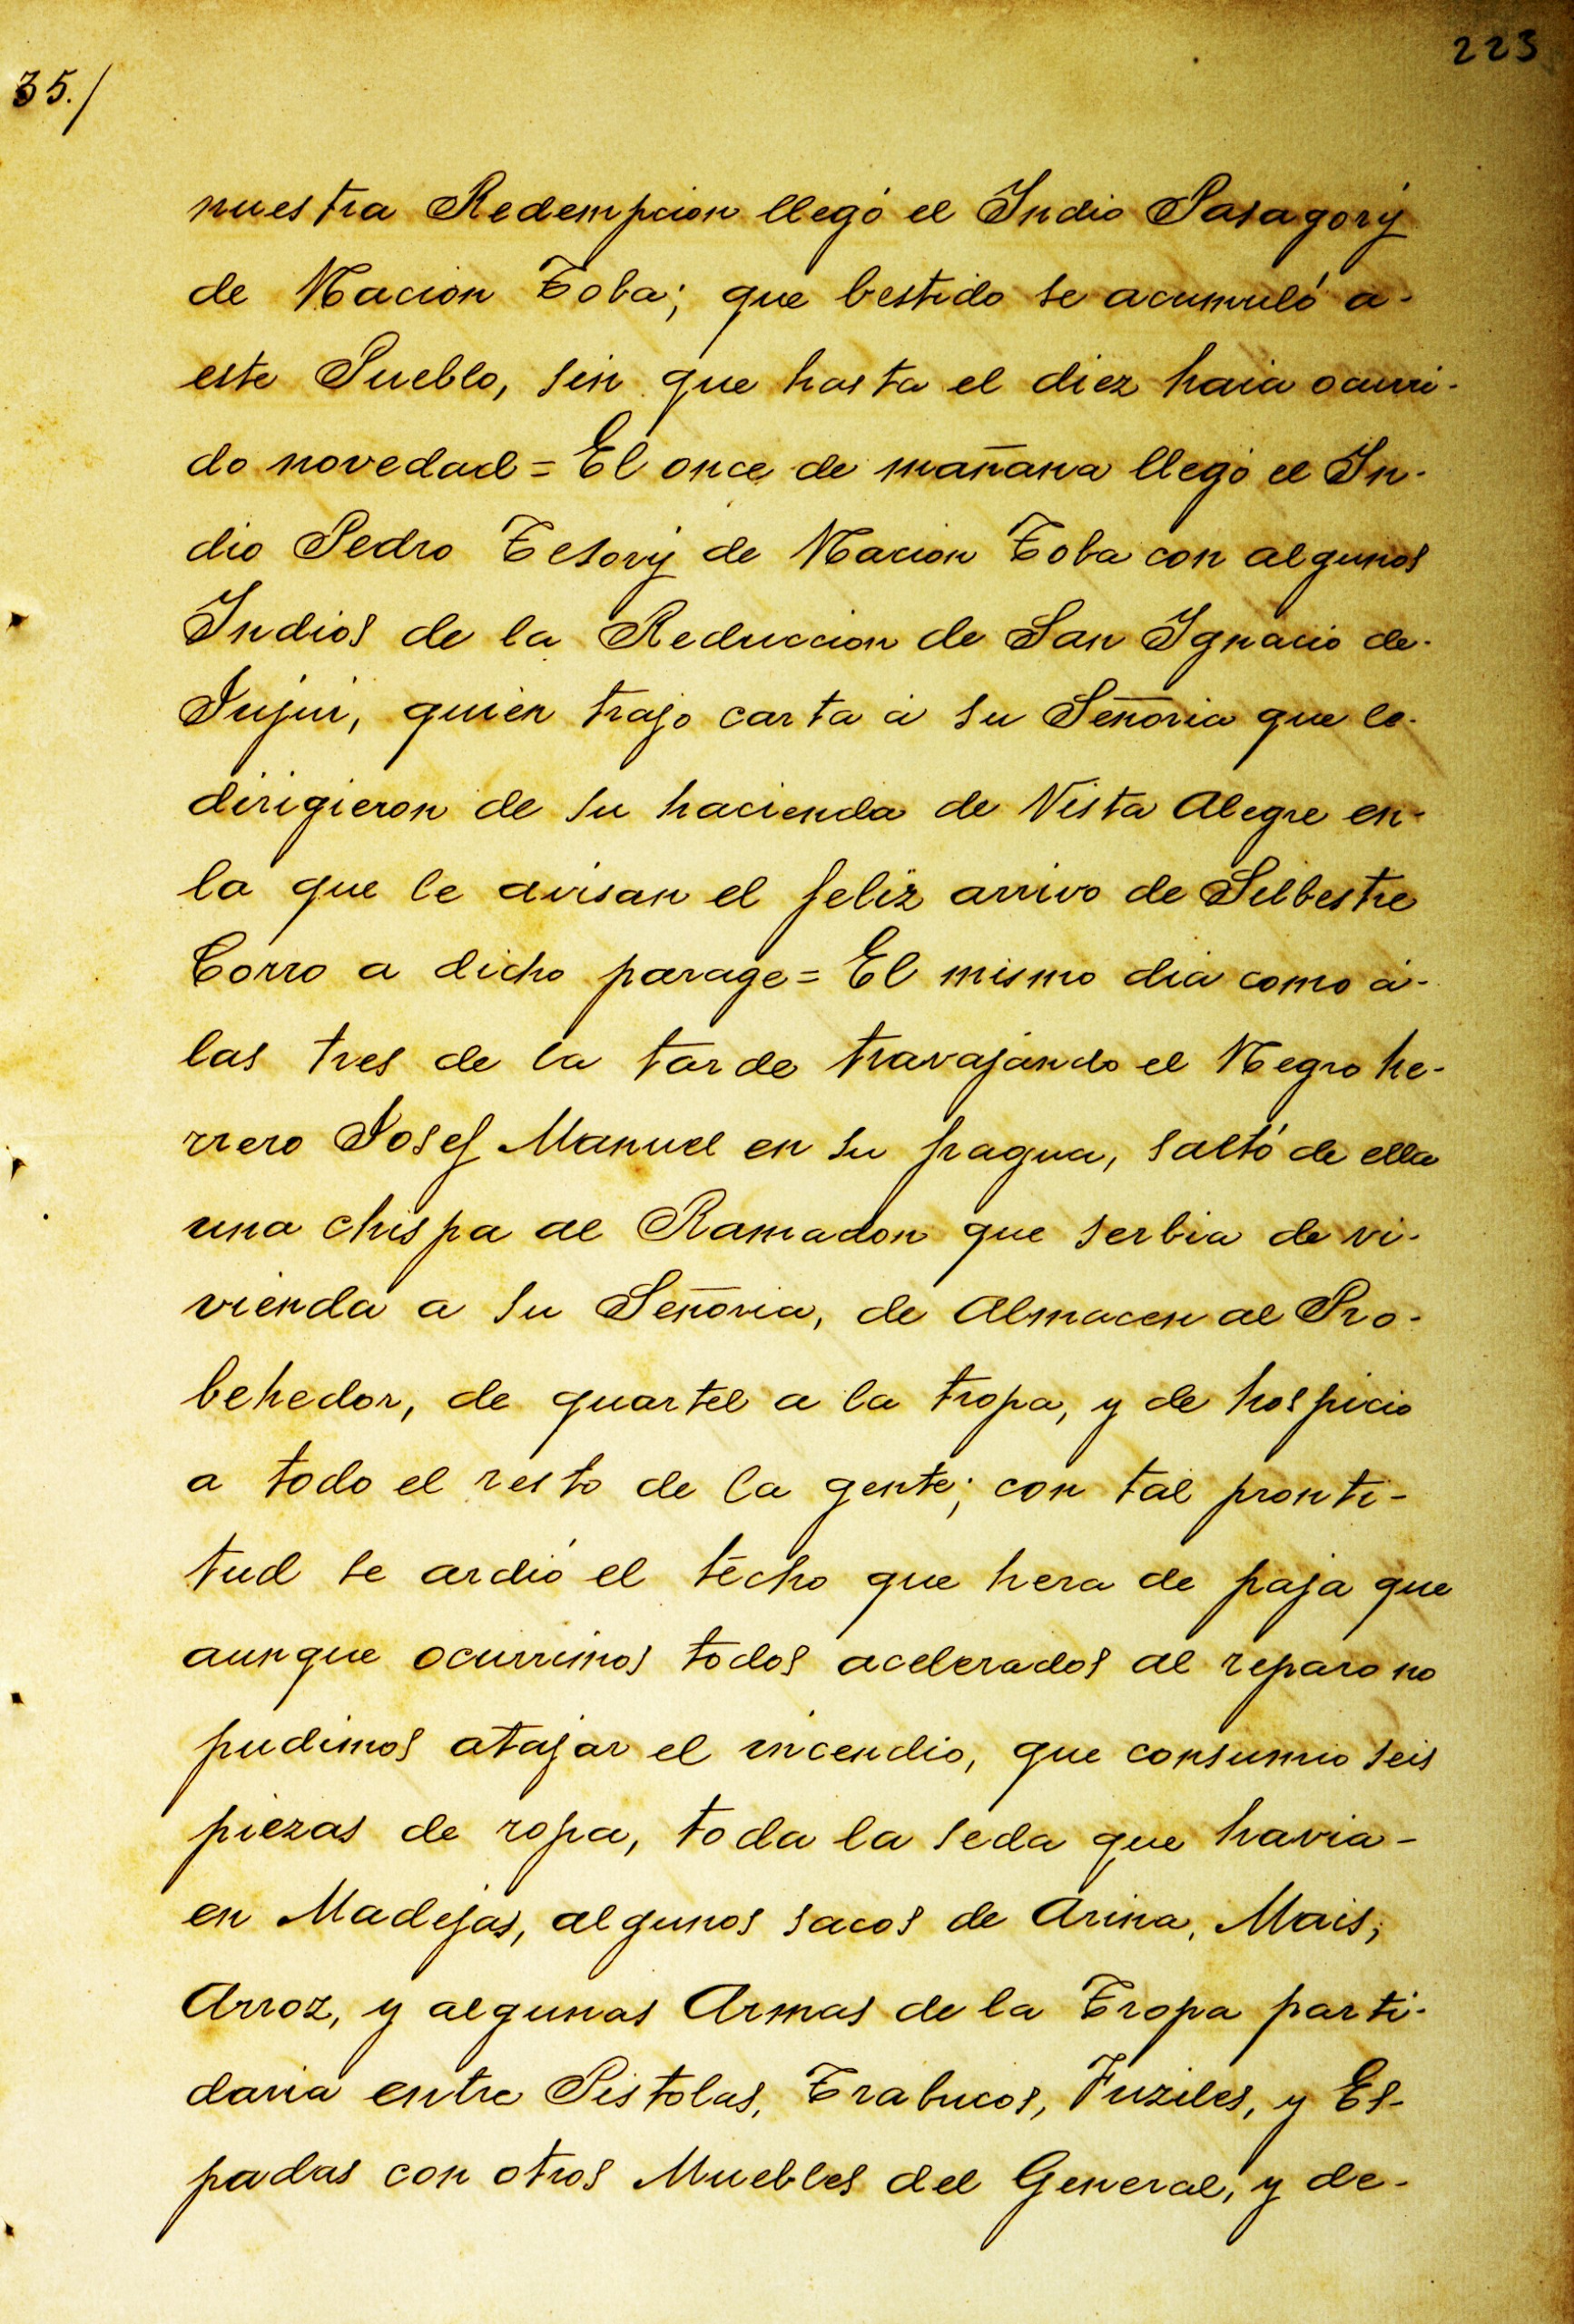 223
35./
nuestra Redempcion llegó el Indio Pasagorý
de Nacion Toba; que bestido se acumuló a-
este Pueblo, sin que hasta el diez haia ocurri-
do novedad = El once de mañana llegó el In-
dio Pedro Tesorý de Nacion Toba con algunos
Indios de la Reduccion de San Ignacio de-
Jujui, quien trajo carta á su Señoria que le-
dirigieron de su hacienda de Vista Alegre en-
la que le avisan el feliz arrivo de Silbestre
Corro a dicho parage = El mismo dia como á-
las tres de la tarde travajando el Negro he-
rrero Josef Manuel en su fragua, saltó de ella
una chispa al Ramadon que serbia de vi-
vienda a su Señoria, de Almacen al Pro-
behedor, de quartel a la tropa, y de hospicio
a todo el resto de la gente; con tal pronti-
tud se ardió el techo que hera de paja que
aunque ocurrimos todos acelerados al reparo no
pudimos atajar el incendio, que consumio seis
piezas de ropa, toda la seda que havia-
en Madejas, algunos sacos de Arina, Mais,
Arroz, y algunas Armas de la Tropa parti-
daria entre Pistolas, Trabucos, Fuziles, y Es-
padas con otros Muebles del General, y de-